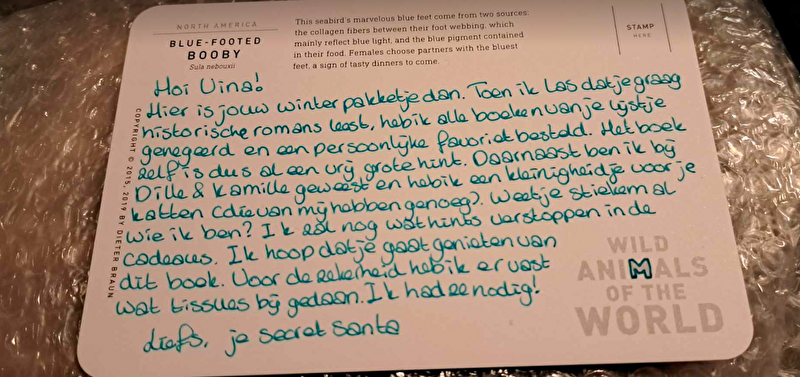 NORTH AMERICA
BLUE-FOOTED
BOOBY
Sula nebouxii
This seabird's marvelous blue feet come from two sources:
the collagen fibers between their foot webbing, which
mainly reflect blue light, and the blue pigment contained
in their food. Females choose partners with the bluest
feet, a sign of tasty dinners to come.
STAMP
HERE
Hoi Vina!
Hier is jouw winterpakketje dan. Toen ik las dat je graag
historische romans leest, heb ik alle boeken van je lijstje
genegeerd en een persoonlijke favoriet besteld. Het boek
zelf is dus al een vrij grote hint. Daarnaast ben ik bij
Dille & Kamille geweest en heb ik een kleinigheidje voor je
katten (die van mij hebben genoeg). Weet je stiekem al
wie ik ben? Ik zal nog wat hints verstoppen in de
cadeaus. Ik hoop dat je gaat genieten van
dit boek. Voor de zekerheid heb ik er vast
wat tissues bij gedaan. Ik had ze nodig!
Liefs, je secret santa
COPYRIGHT © 2015, 2019 BY DIETER BRAUN
WILD
ANIMALS
OF THE
WORLD